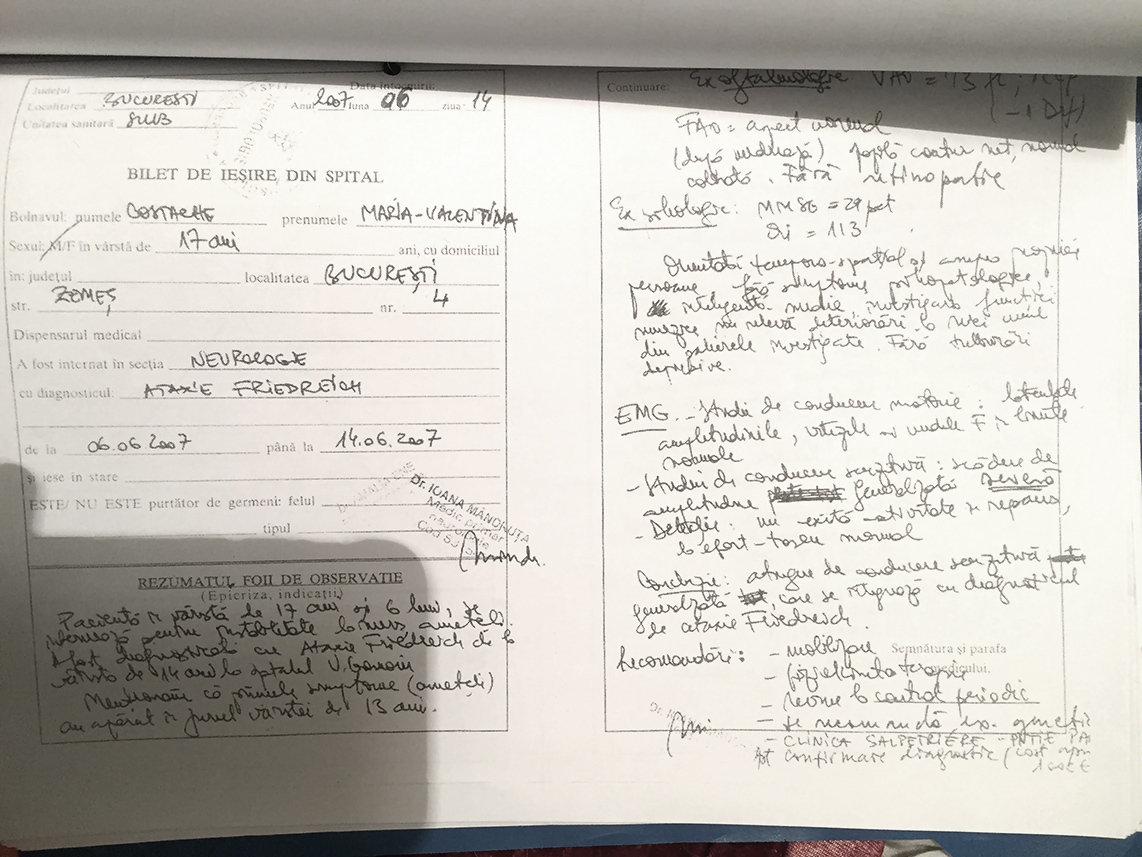 Județul
Data întocmirii:
Localitatea BUCUREȘTI Anul 2007 luna 06 ziua 14
Unitatea sanitară SUUB
BILET DE IEȘIRE DIN SPITAL
Bolnavul: numele COSTACHE prenumele MARIA-VALENTINA
Sexul: M/F în vârstă de 17 ani ani, cu domiciliul
în: județul localitatea BUCUREȘTI
str. ZEMEȘ nr. 4
Dispensarul medical
A fost internat în secția NEUROLOGIE
cu diagnosticul: ATAXIE FRIEDREICH
de la 06.06.2007 până la 14.06.2007
și iese în stare
ESTE/ NU ESTE purtător de germeni: felul
tipul
Dr. IOANA MÂNDRUȚA
Medic primar
neurologie
REZUMATUL FOII DE OBSERVATIE
(Epicriza, indicații)
Pacientă în vârstă de 17 ani și 6 luni, se
internează pentru instabilitate la mers, amețeli.
A fost diagnosticată cu Ataxie Friedreich de la
vârsta de 14 ani la spitalul
Menționăm că primele simptome (amețeli)
au apărut în jurul vârstei de 13 ani.
Continuare: Ex oftalmologic VAO =
FAO = aspect normal
(după midriază) papilă contur net, normal
colorată. Fără retinopatie
Ex psihologic: MMSE = 29 pct
QI = 113.
Orientată temporo-spațial și asupra propriei
persoane, fără simptome psihopatologice,
inteligență medie, investigarea funcției
mnezice nu relevă deteriorări la nici unul
din palierele investigate. Fără tulburări
depresive.
EMG. - Studii de conducere motorie: latențele
amplitudinile, vitezele și undele F în limite
normale
- Studii de conducere senzitivă: scădere de
amplitudine generalizată severă
- Detecție: nu există activitate în repaus,
la efort - traseu normal
Concluzie: atingere de conducere senzitivă
generalizată, care se integrează cu diagnosticul
de ataxie Friedreich.
Recomandări: - mobilizare
Semnătura și parafa
medicului,
- fiziokinetoterapie
- revine la control periodic
- se recomandă ex. genetic
- CLINICA SALPETRIÈRE
confirmare diagnostic (cost